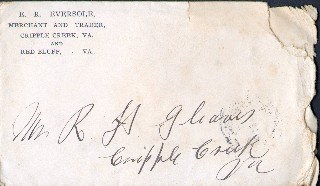 E. K. EVERSOLE,
MERCHANT AND TRADER,
CRIPPLE CREEK, VA.
AND
RED BLUFF, - VA.
Mr R H Gleaves
Cripple Creek
Va